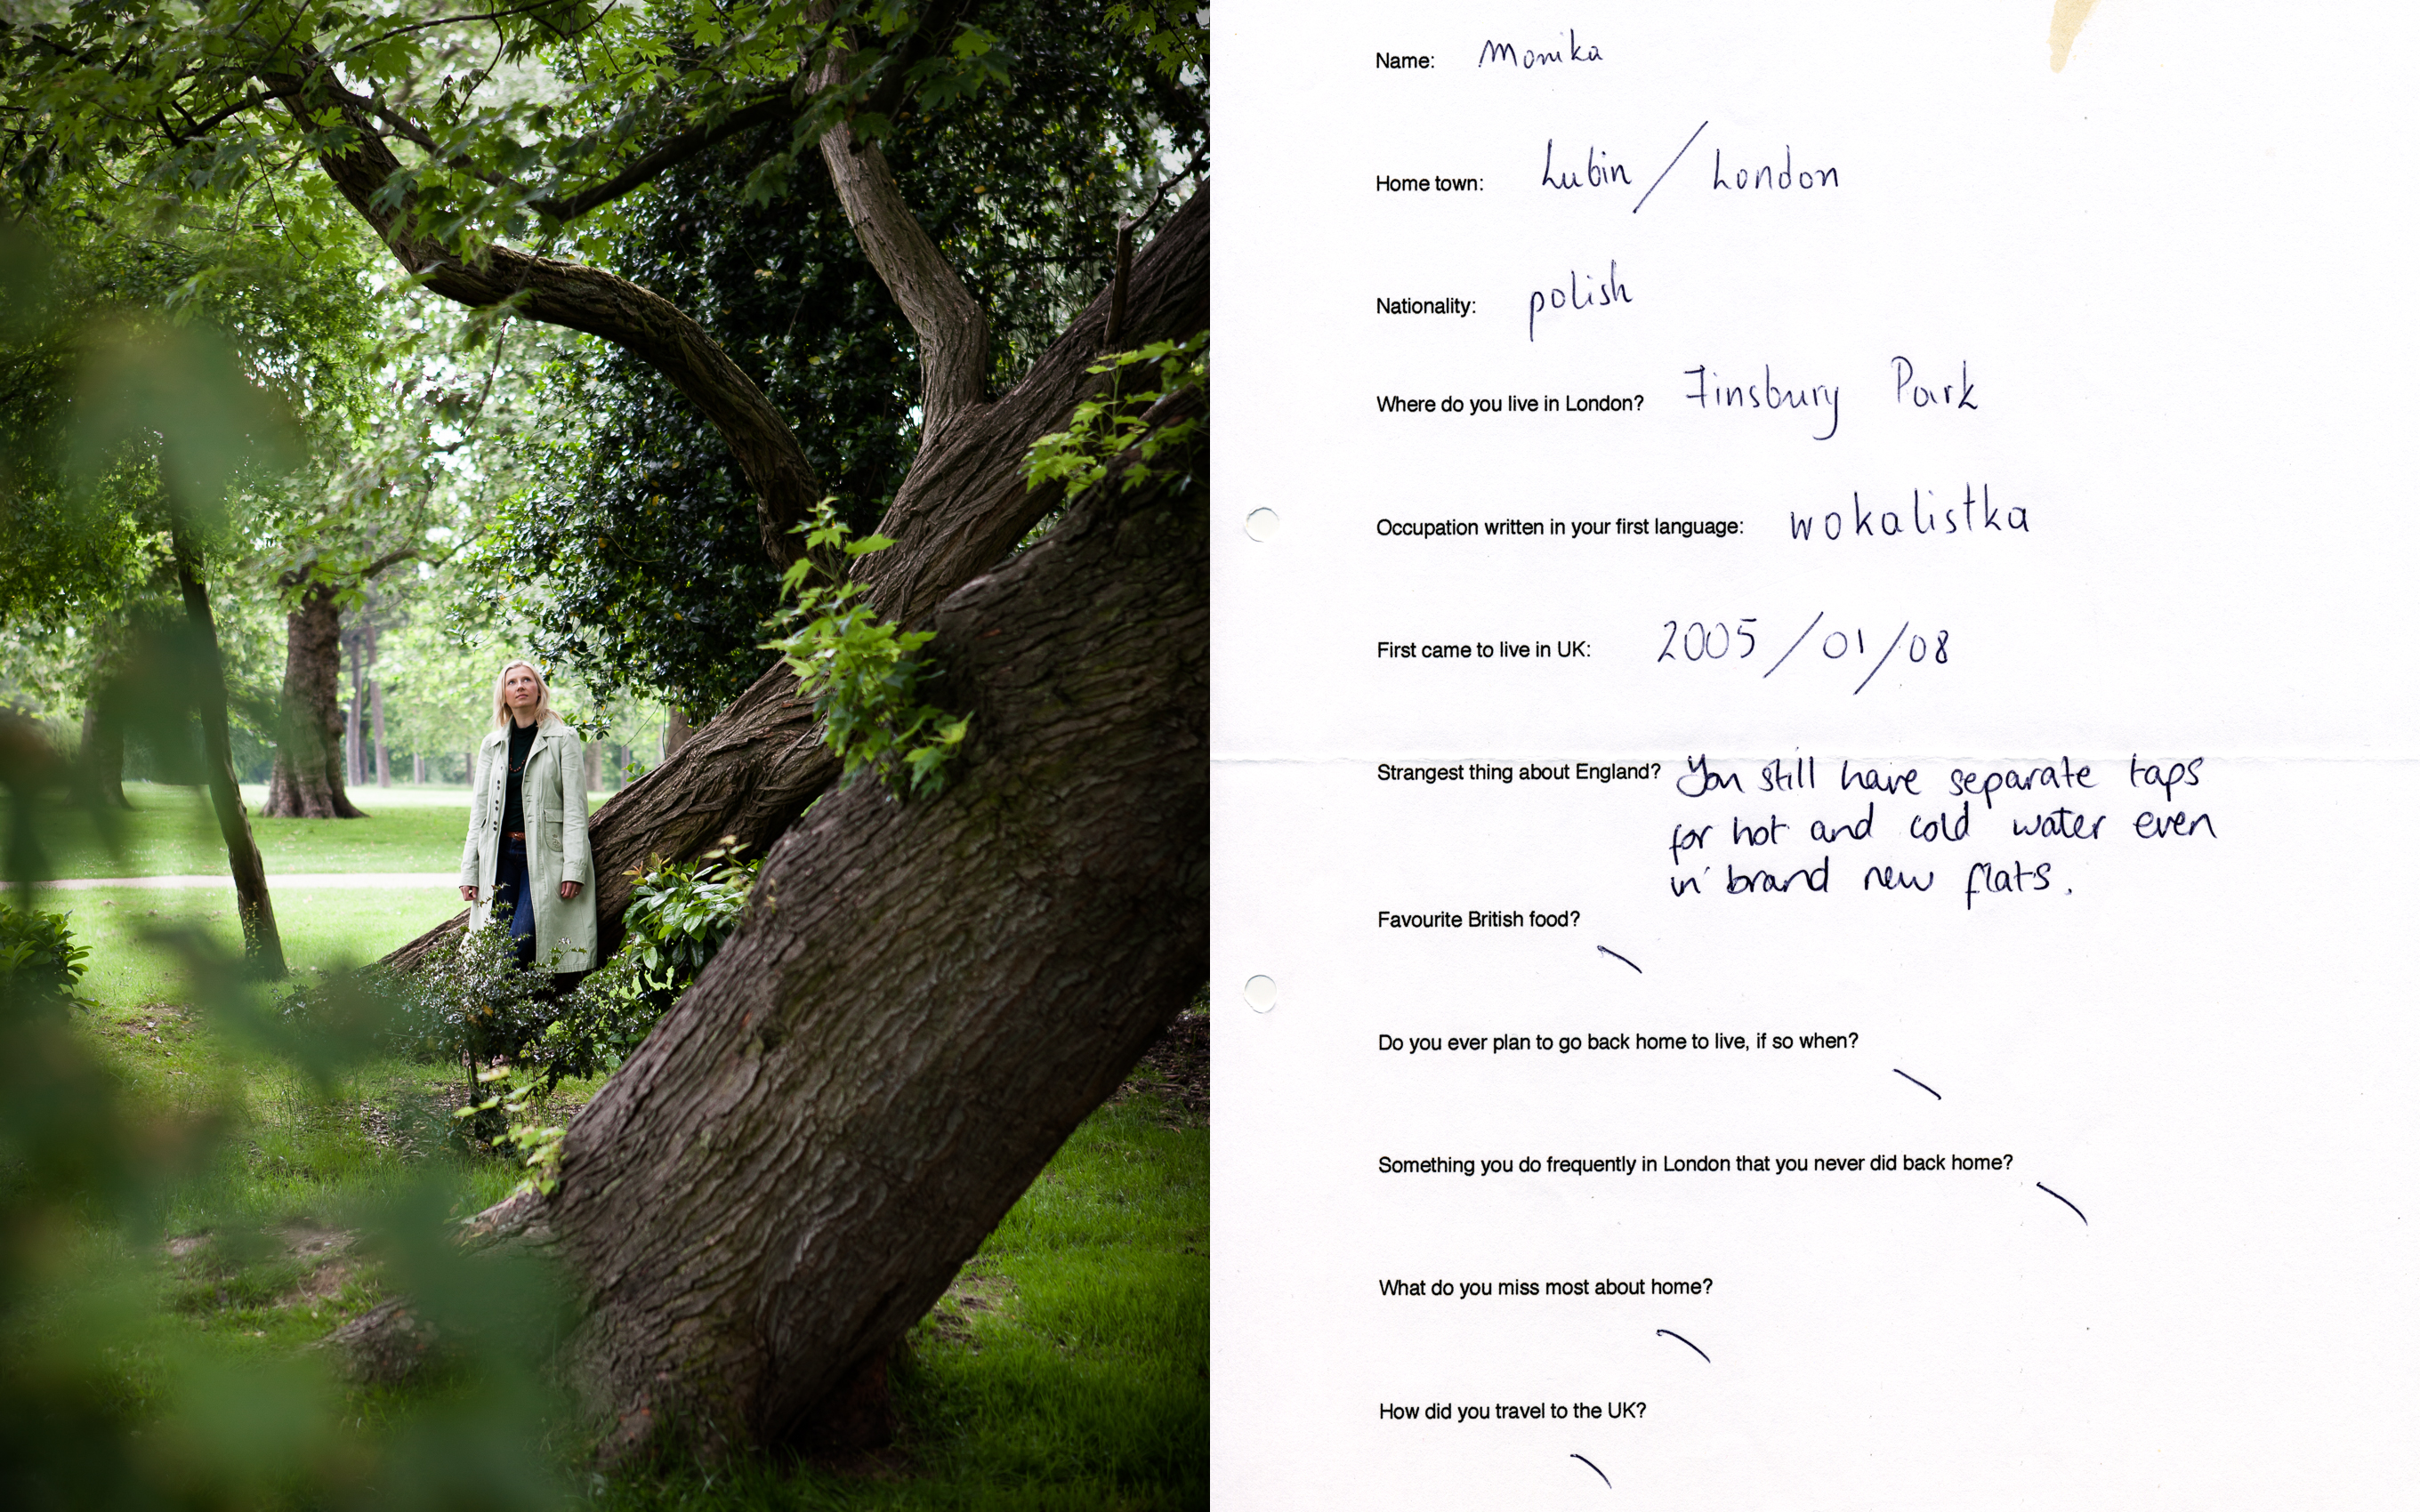 Name: Monika
Home town: Lubin / London
Nationality: polish
Where do you live in London? Finsbury Park
Occupation written in your first language: wokalistka
First came to live in UK: 2005/01/08
Strangest thing about England? You still have separate taps
for hot and cold water even
in brand new flats.
Favourite British food?
Do you ever plan to go back home to live, if so when?
Something you do frequently in London that you never did back home?
What do you miss most about home?
How did you travel to the UK?